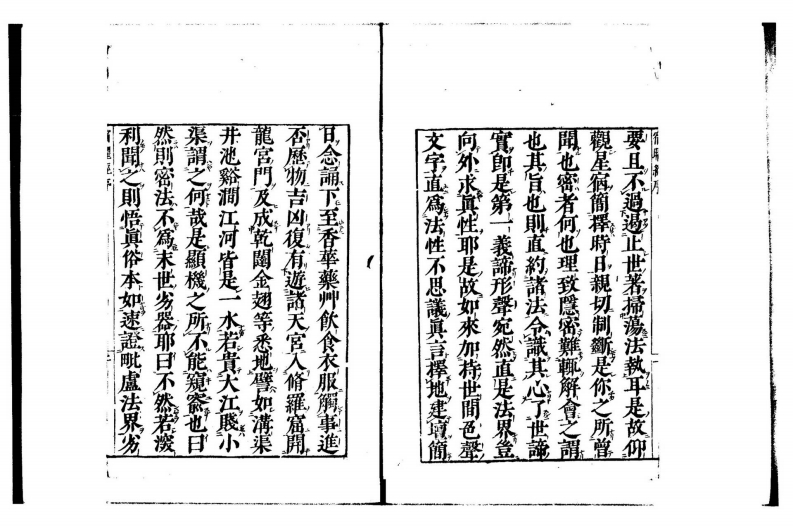 要且不過遏止世著掃蕩法執耳是故仰
觀星宿簡擇時日親切制斷是你之所曾
聞也密者何也理致隱密難輒解會之謂
也其旨也則直約諸法令識其心了世諦
實即是第一義諦形聲宛然直是法界豈
向外求眞性耶是故如來加持世間色聲
文字直爲法性不思議眞言擇地建壇簡
日念誦下至香華藥艸飲食衣服觸事進
否歷物吉凶復有遊諸天宮入脩羅窟開
龍宮門及成乾闥金翅等悉地譬如溝渠
井池谿澗江河皆是一水若貴大江賤小
渠謂之何哉是顯機之所不能窺窬也曰
然則密法不爲末世劣器耶曰不然若潑
利聞之則悟眞俗本如速證毗盧法界劣